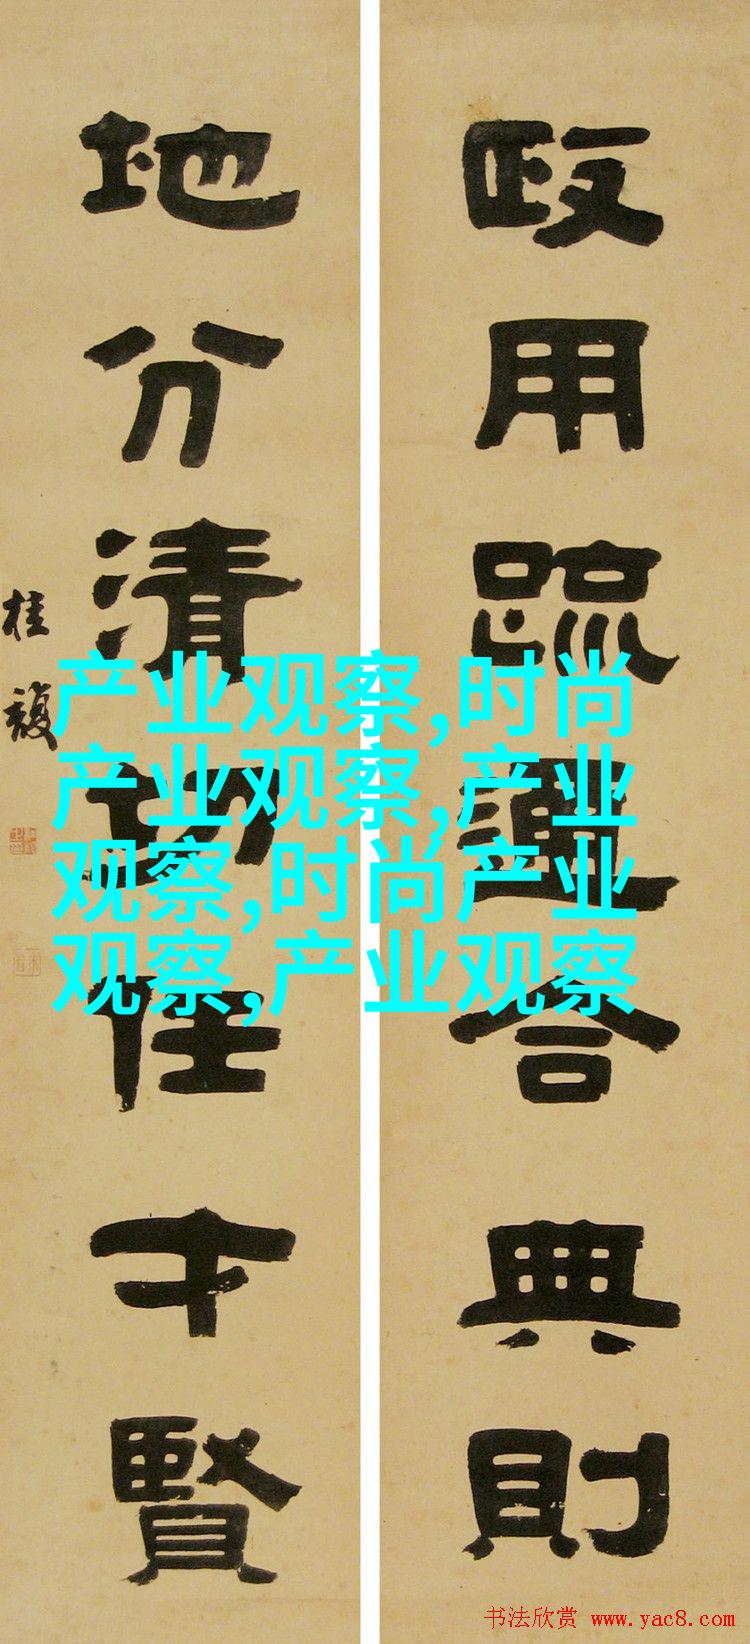 政用疏通合典則
地分清切任才賢
桂馥
产业观察,时尚
产业观察,产业
观察,时尚产业
观察,产业观察
书法欣赏 www.yac8.com